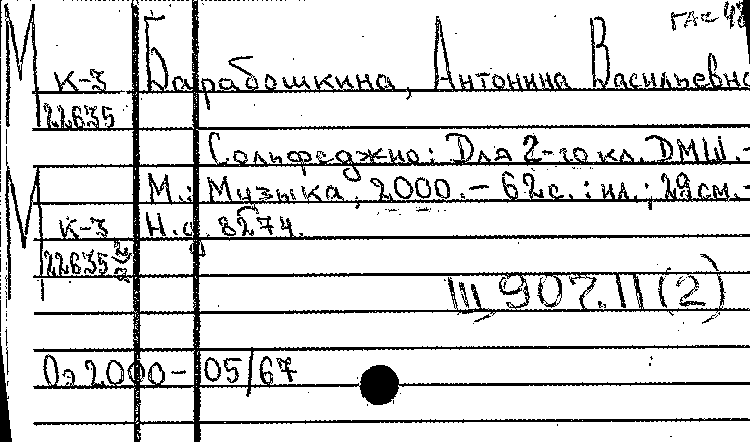 М
К-3
22635
Барабошкина, Антонина Васильевна
Сольфеджио: Для 2-го кл. ДМШ.-
М.: Музыка, 2000.- 62с.: ил.; 29см.-
Н.д. 8274.
М
К-3
22635
Ш 907.11(2)
Оэ 2000- 05/67